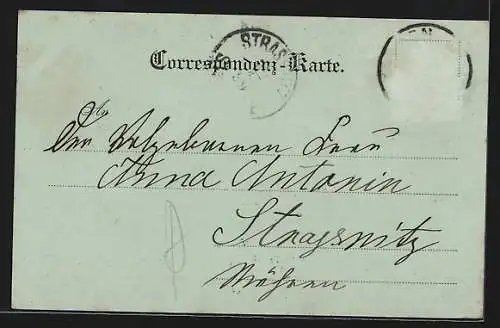 STRAS
N
Correspondenz-Karte.
Der Wohlgeborenen Frau
Anna Antonin
Strassnitz
Mähren